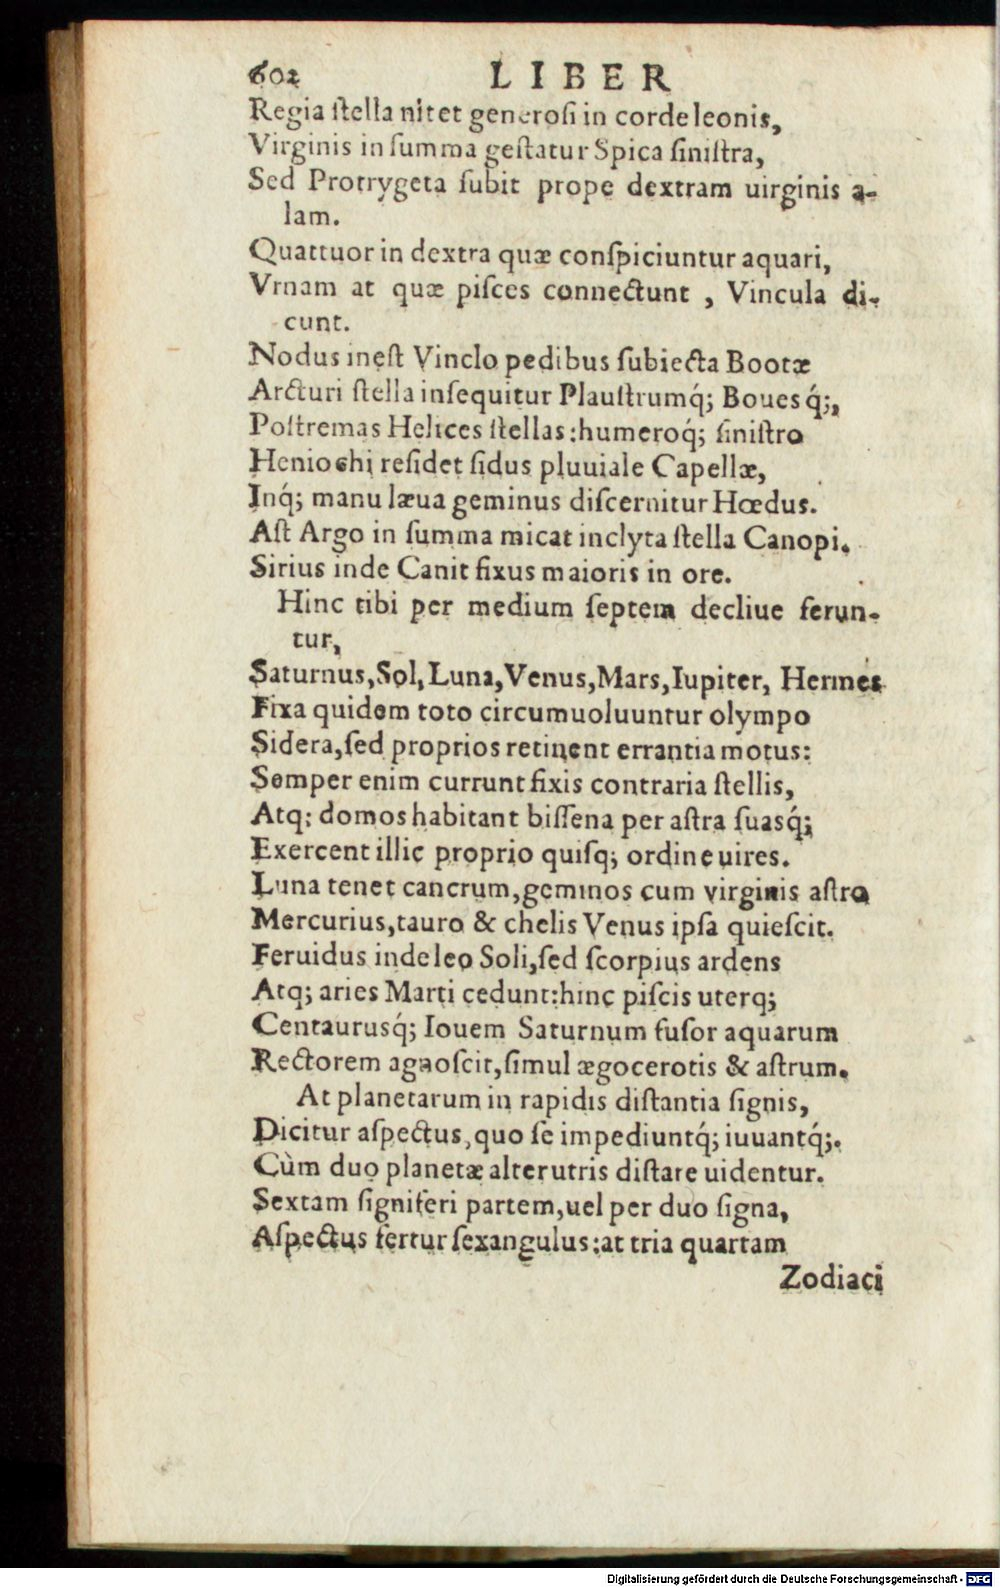 602 LIBER
Regia ſtella nitet generoſi in corde leonis,
Virginis in ſumma geſtatur Spica ſiniſtra,
Sed Protrygeta ſubit prope dextram uirginis a-
lam.
Quattuor in dextra quæ conſpiciuntur aquari,
Vrnam at quæ piſces connectunt, Vincula di-
cunt.
Nodus ineſt Vinclo pedibus ſubiecta Bootæ
Arcturi ſtella inſequitur Plauſtrumq́; Bouesq́;,
Poſtremas Helices ſtellas: humeroq́; ſiniſtro
Heniochi reſidet ſidus pluuiale Capellæ,
Inq́; manu læua geminus diſcernitur Hœdus.
Aſt Argo in ſumma micat inclyta ſtella Canopi.
Sirius inde Canit fixus maioris in ore.
Hinc tibi per medium ſeptem decliue ferun-
tur,
Saturnus, Sol, Luna, Venus, Mars, Iupiter, Hermes
Fixa quidem toto circumuoluuntur olympo
Sidera, ſed proprios retinent errantia motus:
Semper enim currunt fixis contraria ſtellis,
Atq; domos habitant biſſena per aſtra ſuasq́;
Exercent illic proprio quiſq; ordine uires.
Luna tenet cancrum, geminos cum virginis aſtro
Mercurius, tauro & chelis Venus ipſa quieſcit.
Feruidus inde leo Soli, ſed ſcorpius ardens
Atq; aries Marti cedunt: hinc piſcis uterq;
Centaurusq́; Iouem Saturnum fuſor aquarum
Rectorem agnoſcit, ſimul ægocerotis & aſtrum.
At planetarum in rapidis diſtantia ſignis,
Dicitur aſpectus, quo ſe impediuntq́; iuuantq́;.
Cùm duo planetæ alterutris diſtare uidentur.
Sextam ſigniferi partem, uel per duo ſigna,
Aſpectus fertur ſexangulus: at tria quartam
Zodiaci
Digitalisierung gefördert durch die Deutsche Forschungsgemeinschaft - DFG